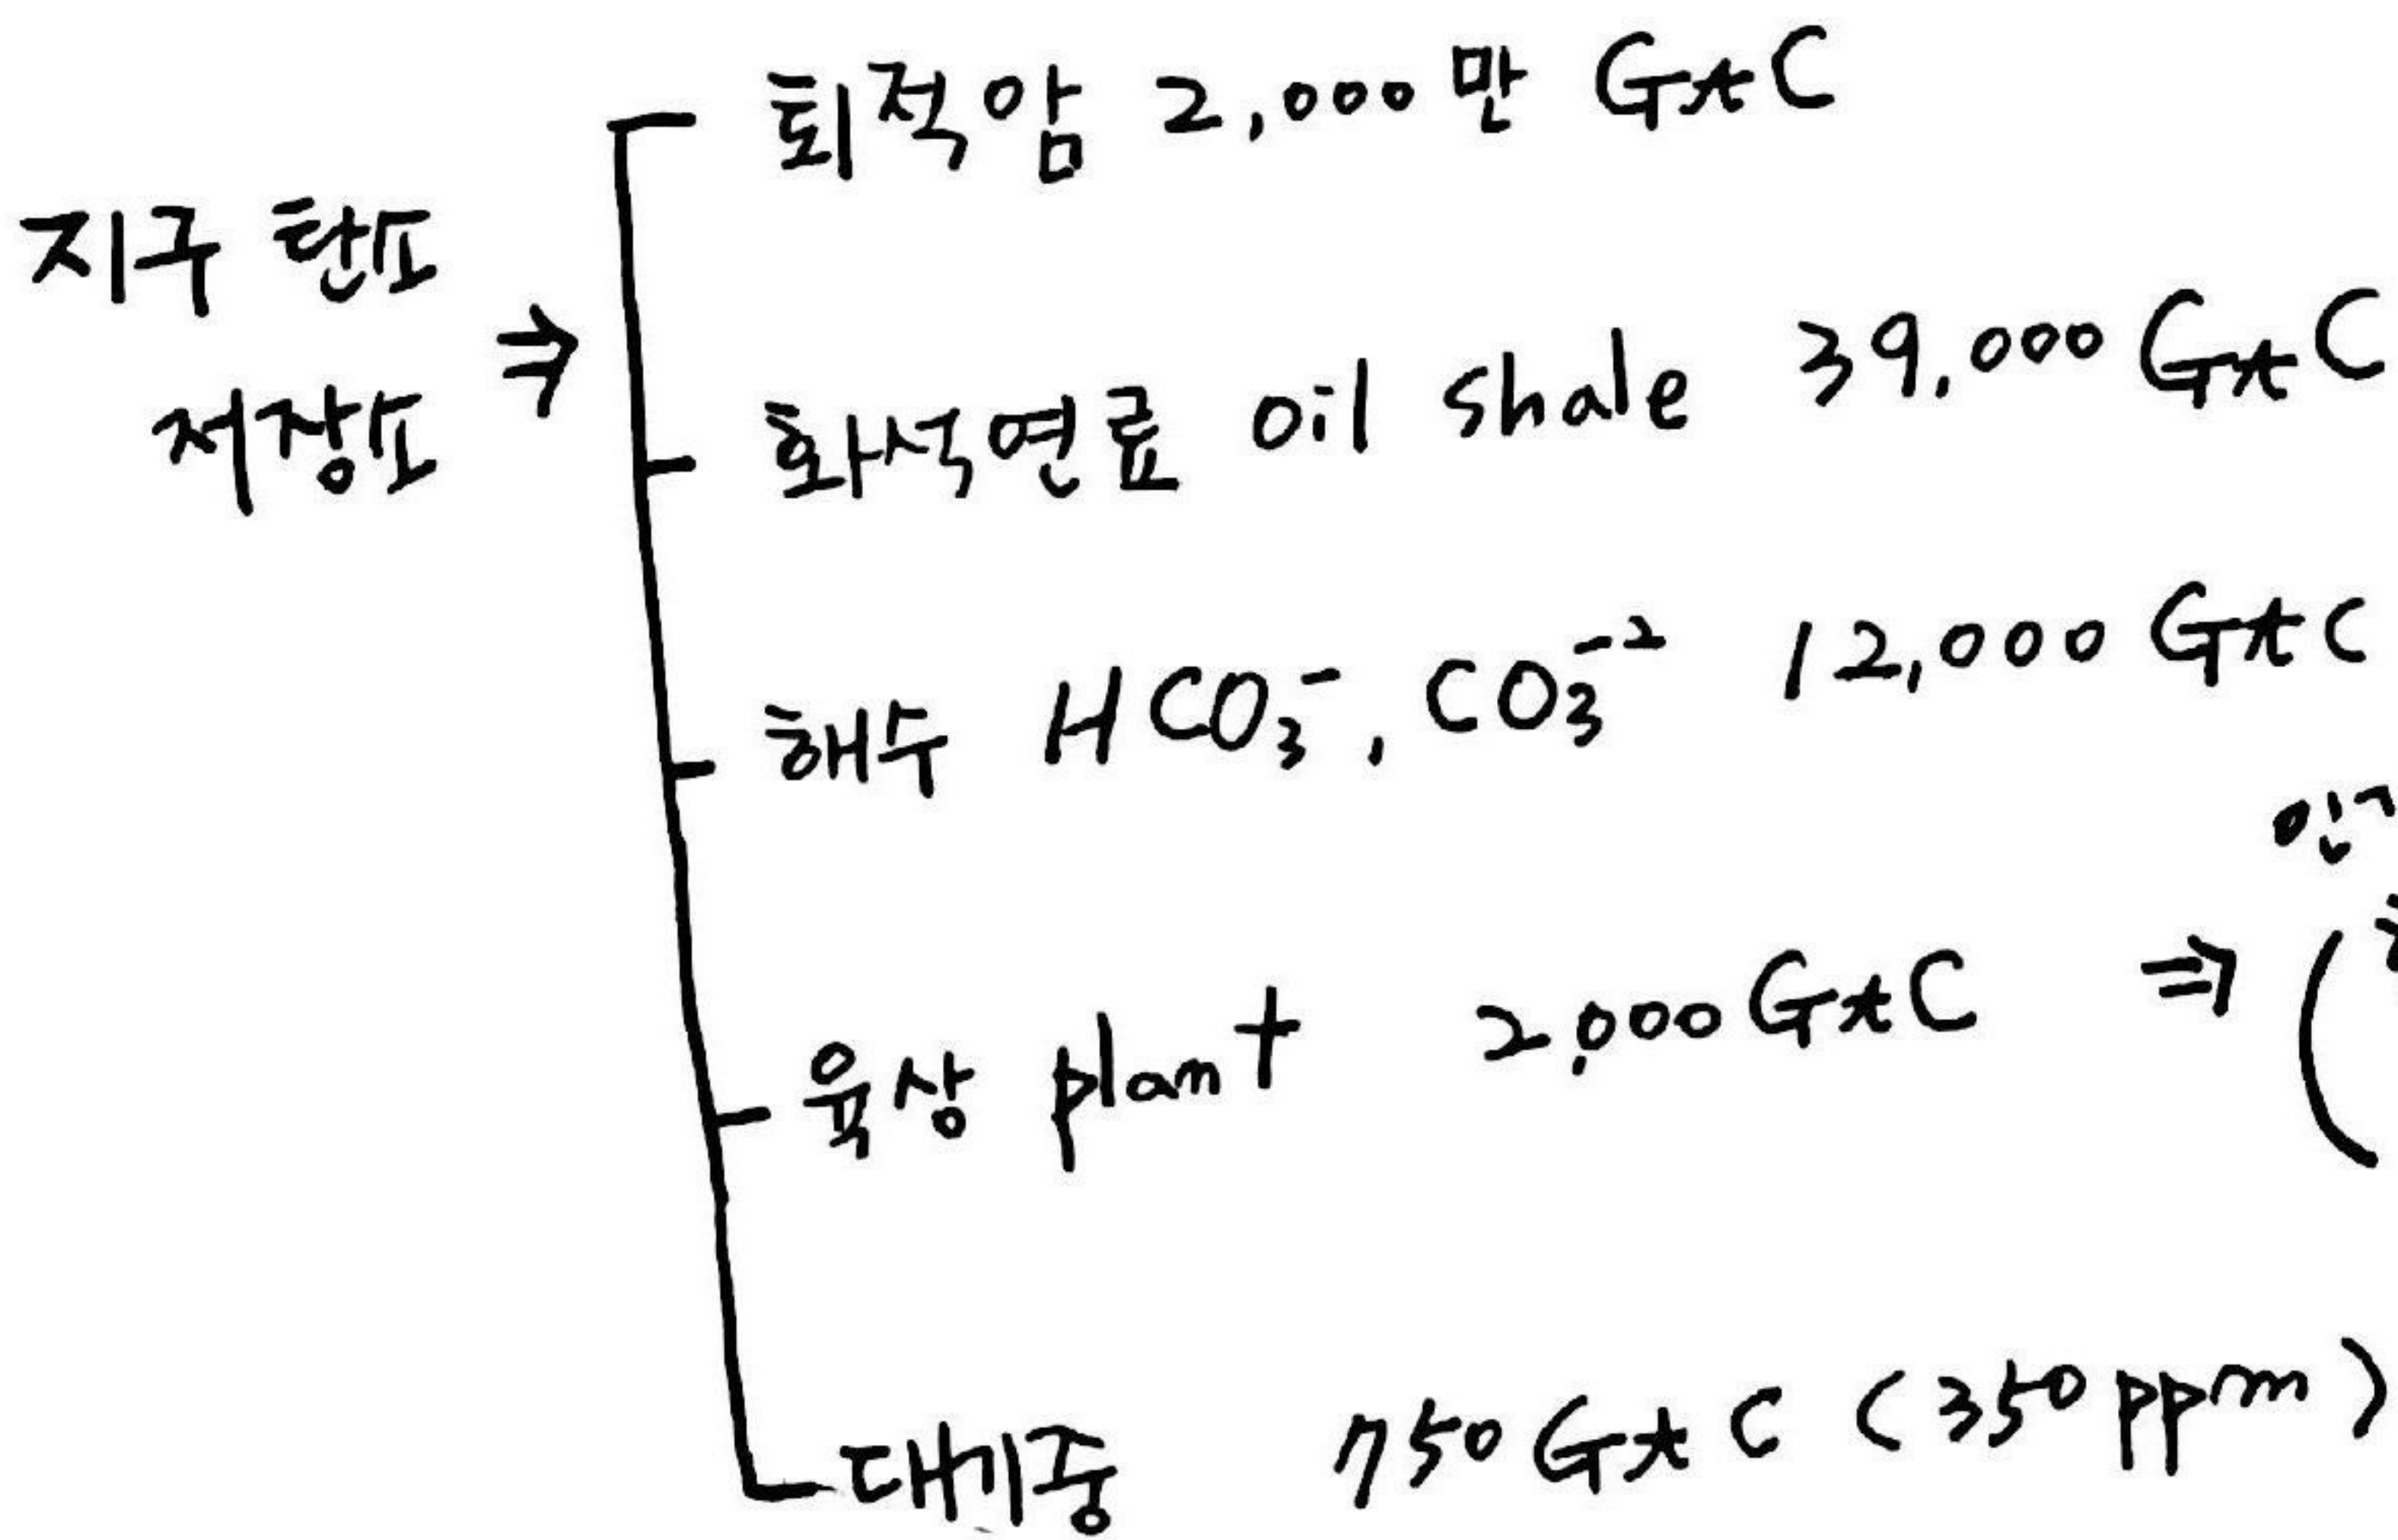 지구 탄소
저장소 ⇒
퇴적암 2,000만 GtC
화석연료 oil shale 39,000 GtC
해수 HCO₃⁻, CO₃⁻² 12,000 GtC
육상 plant 2,000 GtC ⇒ (
대기중 750 GtC (350 ppm)